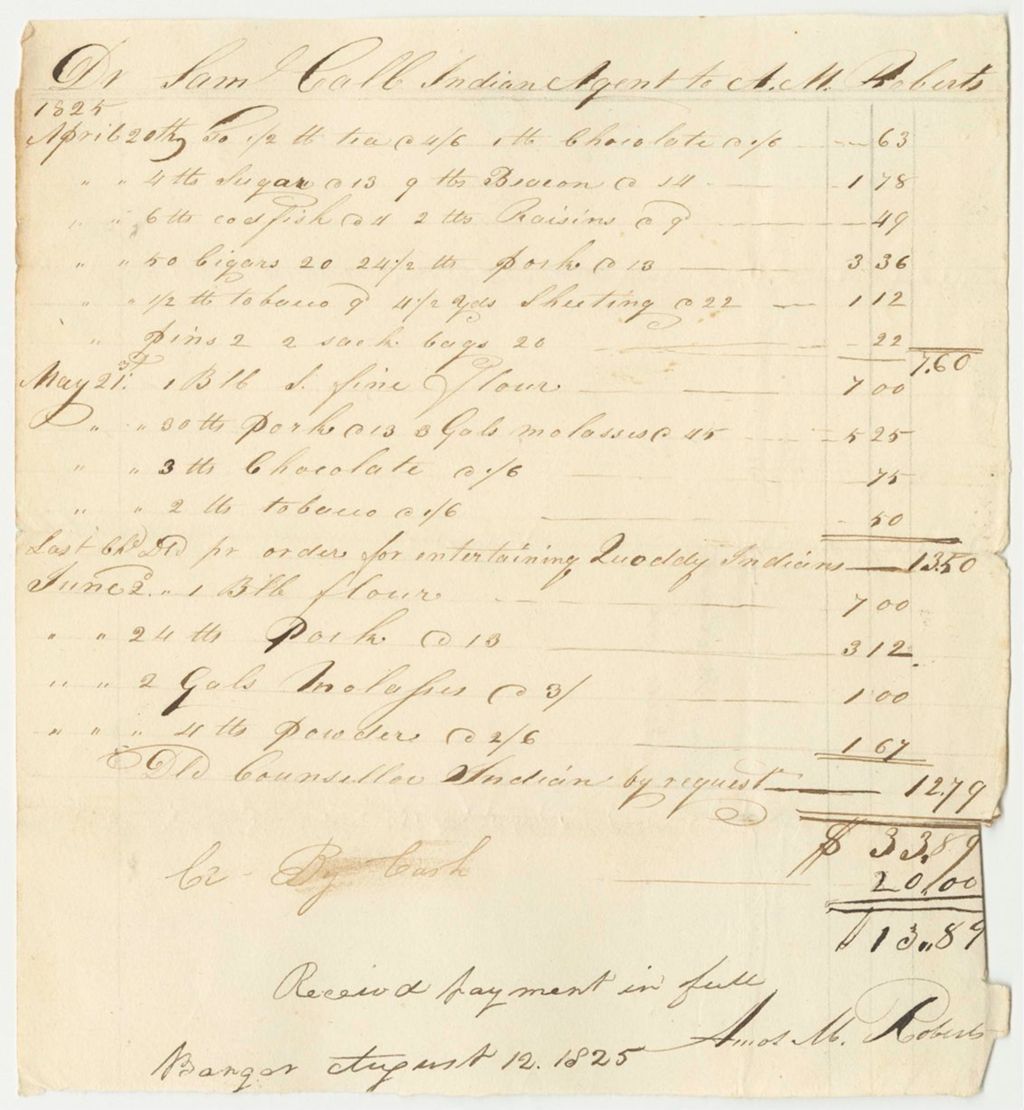 Dr Saml Call Indian Agent to A. M. Roberts
1825
April 20th To 1/2 lb tea @ 4/6 1 lb Chocolate @ 1/6 63
" " 4 lb Sugar @ 13 9 lbs Beacon @ 14 1 78
" " 6 lb codfish @ 4 2 lbs Raisins @ 9 49
" " 50 Cigars 20 24 1/2 lb Pork @ 13 3 36
" " 1/2 lb tobacco 9 4 1/2 yds Sheeting @ 22 1 12
" pins 2 2 sack bags 20 22 7.60
May 21st. 1 Blb S. fine Flour 7 00
" " 30 lb Pork @ 13 3 Gals molasses @ 45 5 25
" " 3 lb Chocolate @ 1/6 75
" " 2 lb tobacco @ 1/6 50
Last Chd Dld pr order for entertaining Quoddy Indians 13.50
June 2d. " 1 Blb flour 7 00
" " 24 lb Pork @ 13 3 12
" " 2 Gals Molasses @ 3/ 1 00
" " " 4 lb powder @ 2/6 1 67
Dld Counsellor Indian by request 12.79
$ 33.89
Cr By Cash 20.00
$ 13,,89
Receivd payment in full
Amos M. Roberts
Bangor August 12. 1825